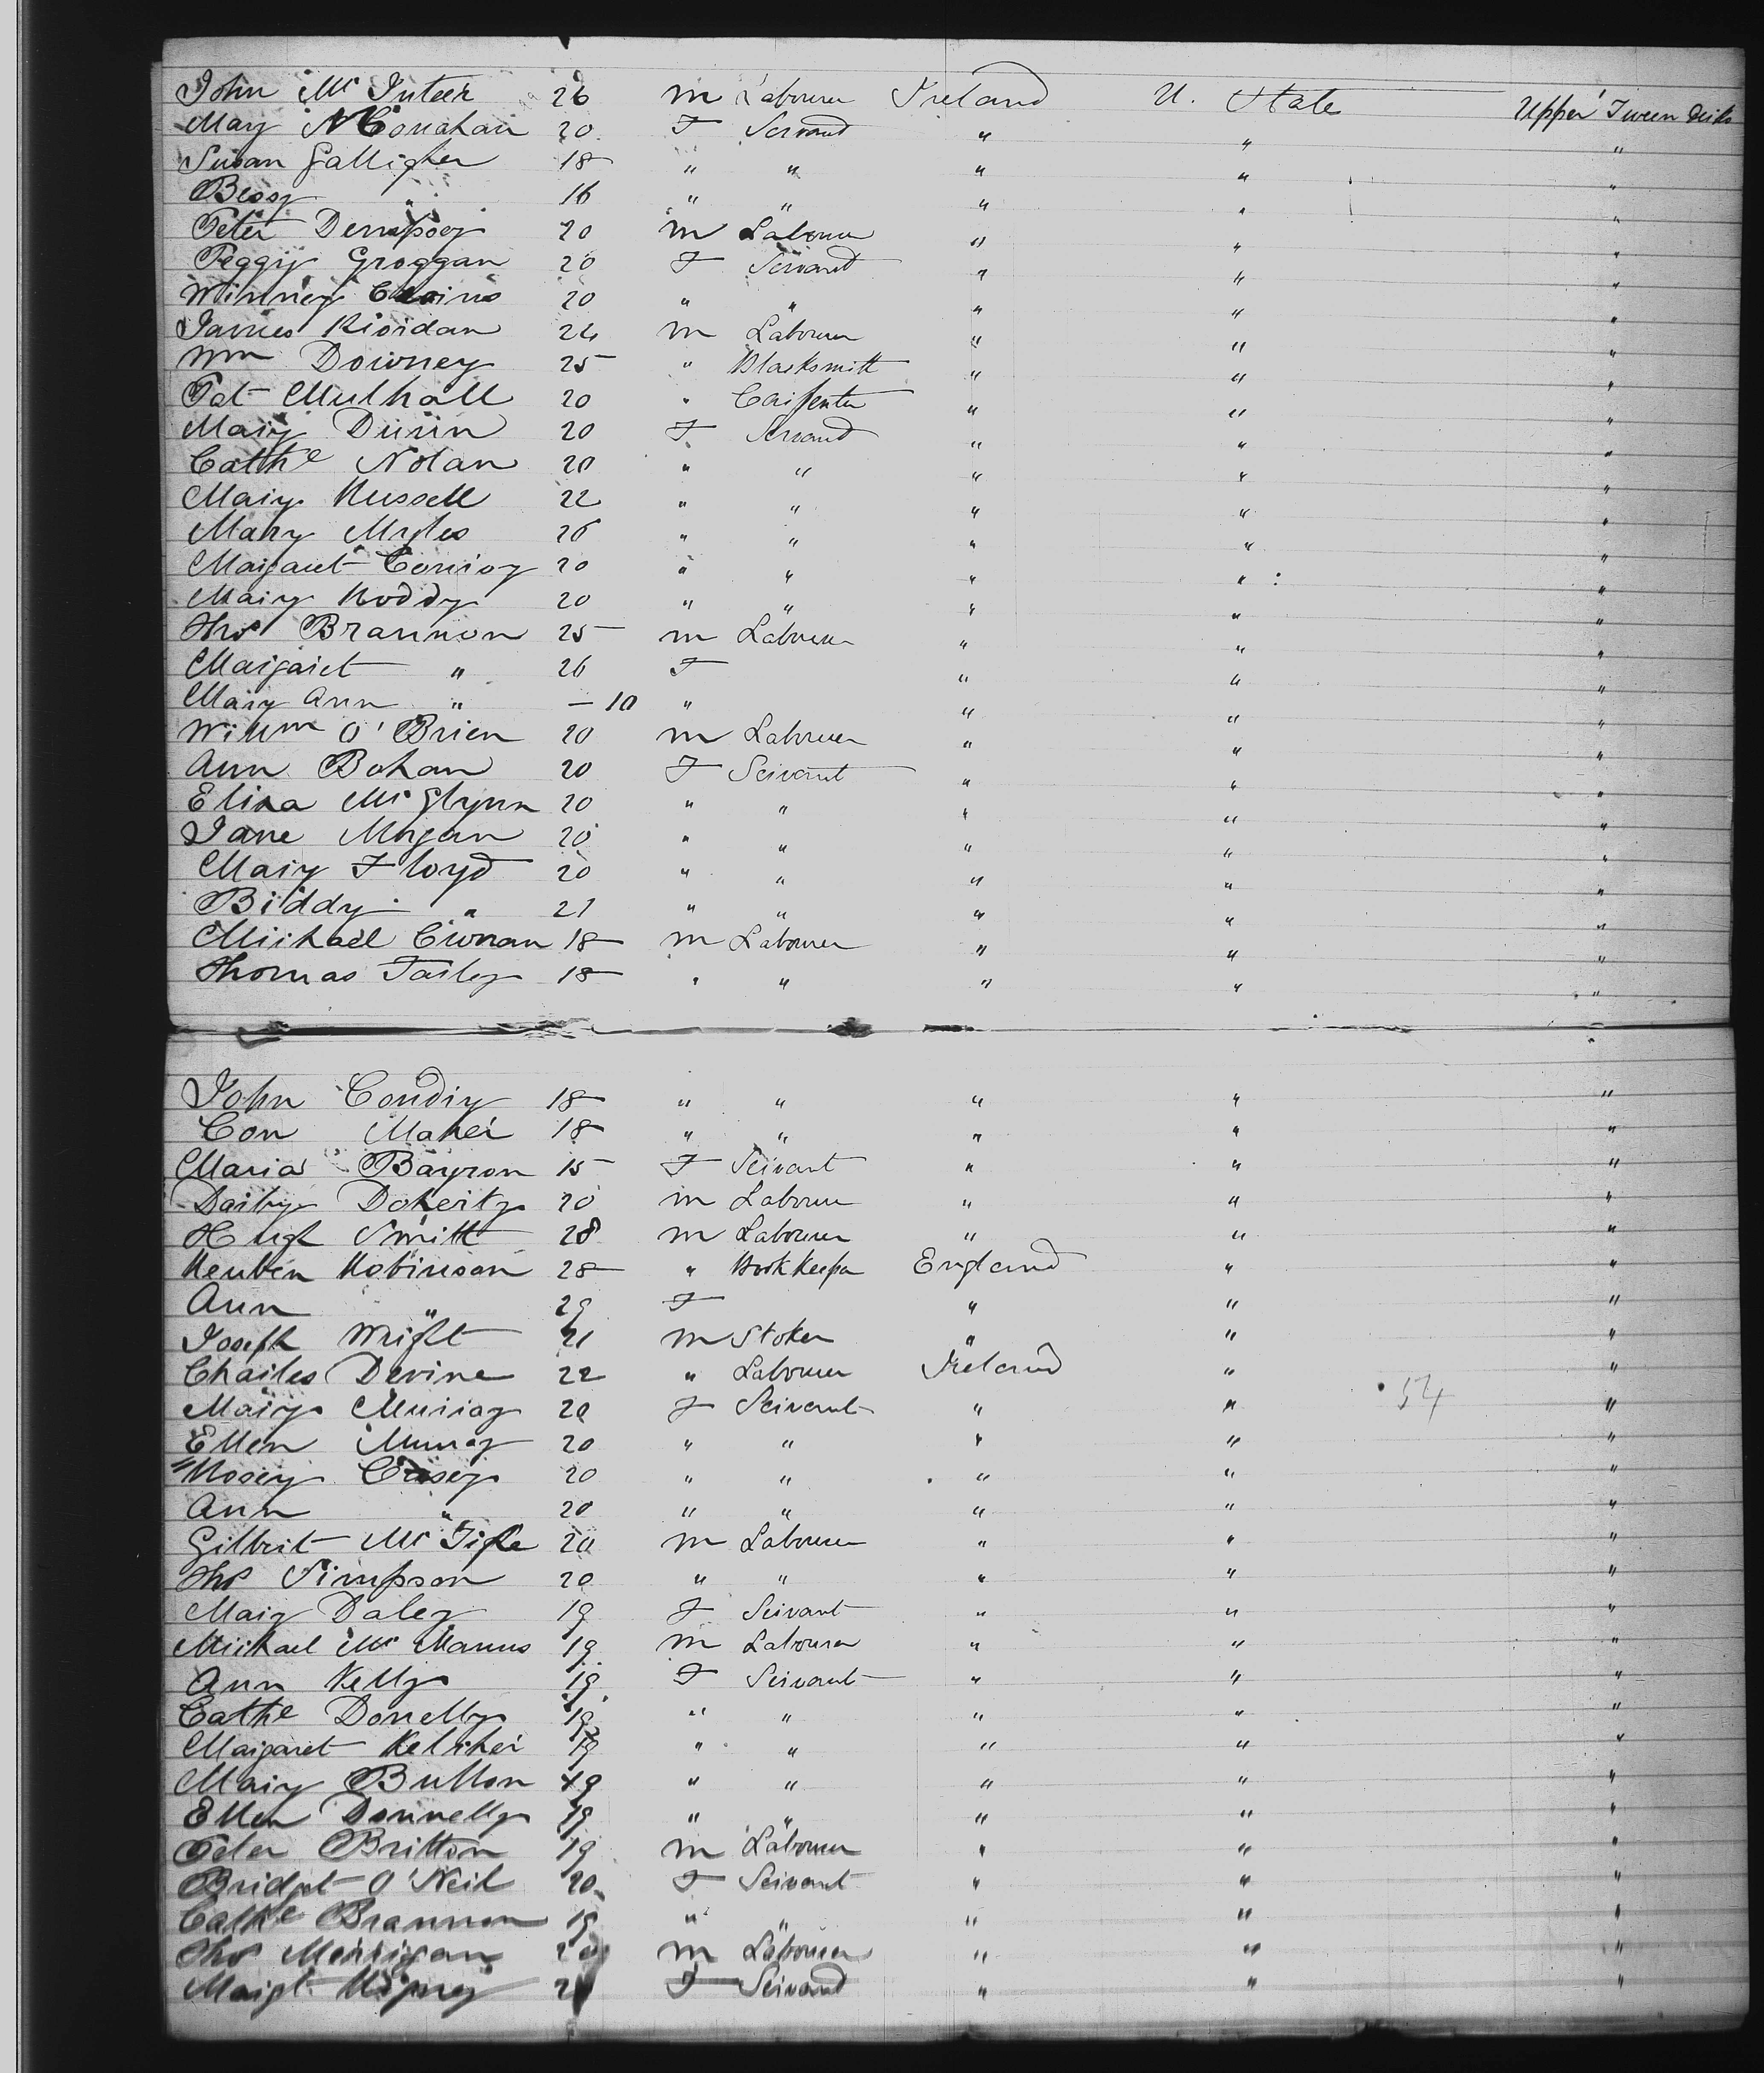 John Mc Inteer 26 m Labourer Ireland U. State Upper Tween Deiks
Mary McConahan 20 F Servand " " "
Susan Galligher 18 " " " " "
Bessy " 16 " " " " "
Peter Dempsey 20 m Labourer " " "
Peggy Groggan 20 F Servant " " "
Winney 20 " " " " "
James Riordan 24 m Labourer " " "
Wm Downey 25 " Blacksmith " " "
Pat Mulhall 20 " Carpenter " " "
Mary Dunn 20 F Servand " " "
Cathe Nolan 20 " " " " "
Mary Russell 22 " " " " "
Mary Myles 26 " " " " "
Margaret Conroy 20 " " " " "
Mary Roddy 20 " " " " "
Thos Brannon 25 m Labourer " " "
Margaret " 26 F " " "
Mary Ann " - 10 " " " "
Willm O'Brien 20 m Labourer " " "
Ann Bohan 20 F Servant " " "
Eliza Mc Glynn 20 " " " " "
Jane Morgan 20 " " " " "
Mary Floyd 20 " " " " "
Biddy " 21 " " " " "
Michael Cronan 18 m Labourer " " "
Thomas Farley 18 " " " " "
John Condry 18 " " " " "
Con Maher 18 " " " " "
Maria Bayron 15 F Servant " " "
Darby Doherty 20 m Labourer " " "
Hugh Smith 28 m Labourer " " "
Reuben Robinson 28 " Book Keeper England " "
Ann " 29 F " " "
Joseph Wright 21 m Stoker " " "
Charles Devine 22 " Labourer Ireland " "
Mary Murray 20 F Servant " " 54 "
Ellen Murray 20 " " " " "
Rosey Casey 20 " " " " "
Ann " 20 " " " " "
Gilbert Mc Tighe 20 m Labourer " " "
Thos Simpson 20 " " " " "
Mary Daley 19 F Servant " " "
Michael Mc Manus 19 m Labourer " " "
Ann Kelly 19 F Servant " " "
Cathe Donelly 19 " " " " "
Margaret Keliher 19 " " " " "
Mary Button 19 " " " " "
Ellen Donnelly 19 " " " " "
Peter Britton 19 m Labourer " " "
Bridget O'Neil 20 F Servant " " "
Cathe Brannon 19 " " " " "
Thos Merrigan 20 m Labourer " " "
Margt F Servand " " "